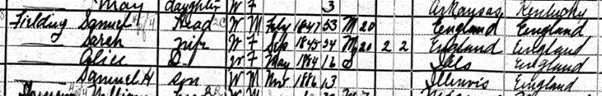 May daughter W F 3 Arkansas Kentucky
Fielding Samuel Head W M July 1847 53 M 20 England England
Sarah Wife W F Sep 1845 54 M 20 2 2 England England
Alice D W F May 1884 16 S Ills England
Samuel H son W M Nov 1886 13 Illinois England
William